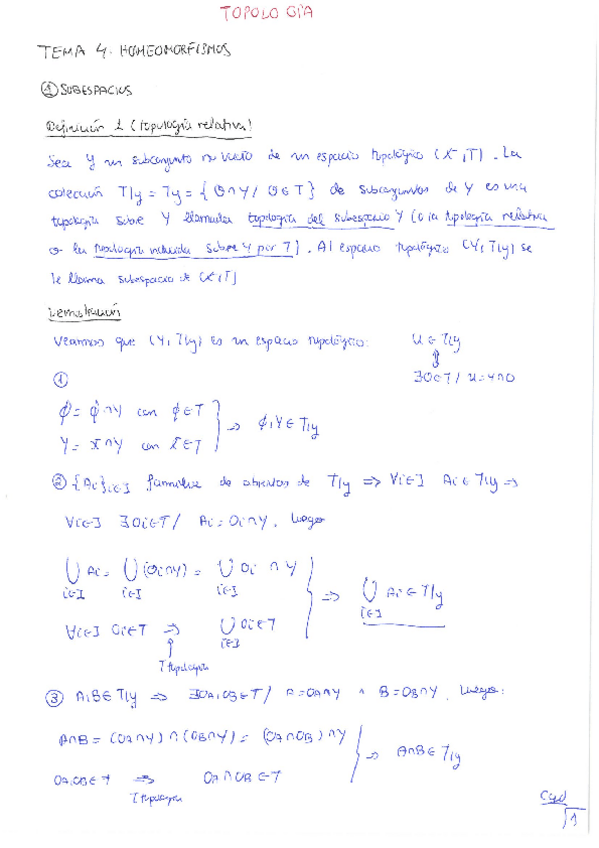 TOPOLOGÍA
TEMA 4: HOMEOMORFISMOS
① SUBESPACIOS
Definición 1 (topología relativa)
Sea Y un subconjunto no vacío de un espacio topológico (X,T). La
colección T|y = Ty = {Θ∩Y / Θ∈T} de subconjuntos de Y es una
topología sobre Y llamada topología del subespacio Y (o la topología relativa
o la topología inducida sobre Y por T). Al espacio topológico (Y,T|y) se
le llama subespacio de (X,T)
Demostración
Veamos que (Y,T|y) es un espacio topológico:
U∈T|y
⇕
∃O∈T / U=Y∩O
①
∅ = ∅∩Y con ∅∈T
Y = X∩Y con X∈T
→ ∅,Y∈T|y
② {Ai}i∈I familia de abiertos de T|y ⇒ ∀i∈I Ai∈T|y ⇒
∀i∈I ∃Oi∈T / Ai=Oi∩Y. Luego
⋃i∈I Ai = ⋃i∈I (Oi∩Y) = ⋃i∈I Oi ∩ Y
∀i∈I Oi∈T ⇒ ⋃i∈I Oi∈T
T topología
⇒ ⋃i∈I Ai∈T|y
③ A,B∈T|y ⇒ ∃OA,OB∈T / A=OA∩Y ∧ B=OB∩Y. Luego:
A∩B = (OA∩Y)∩(OB∩Y) = (OA∩OB)∩Y
OA,OB∈T ⇒ OA∩OB∈T
T topología
⇒ A∩B∈T|y
cqd
1